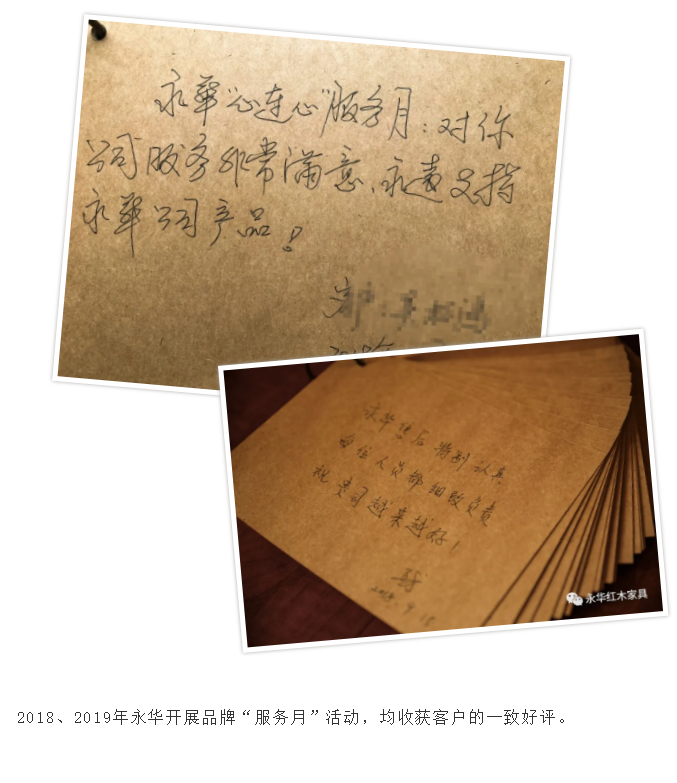 永华“心连心”服务月：对你
公司服务非常满意、永远支持
永华公司产品！
2018年
永华售后特别认真
每位人员都细致负责
祝贵司越来越好！
2018.9.15
永华红木家具
2018、2019年永华开展品牌“服务月”活动，均收获客户的一致好评。